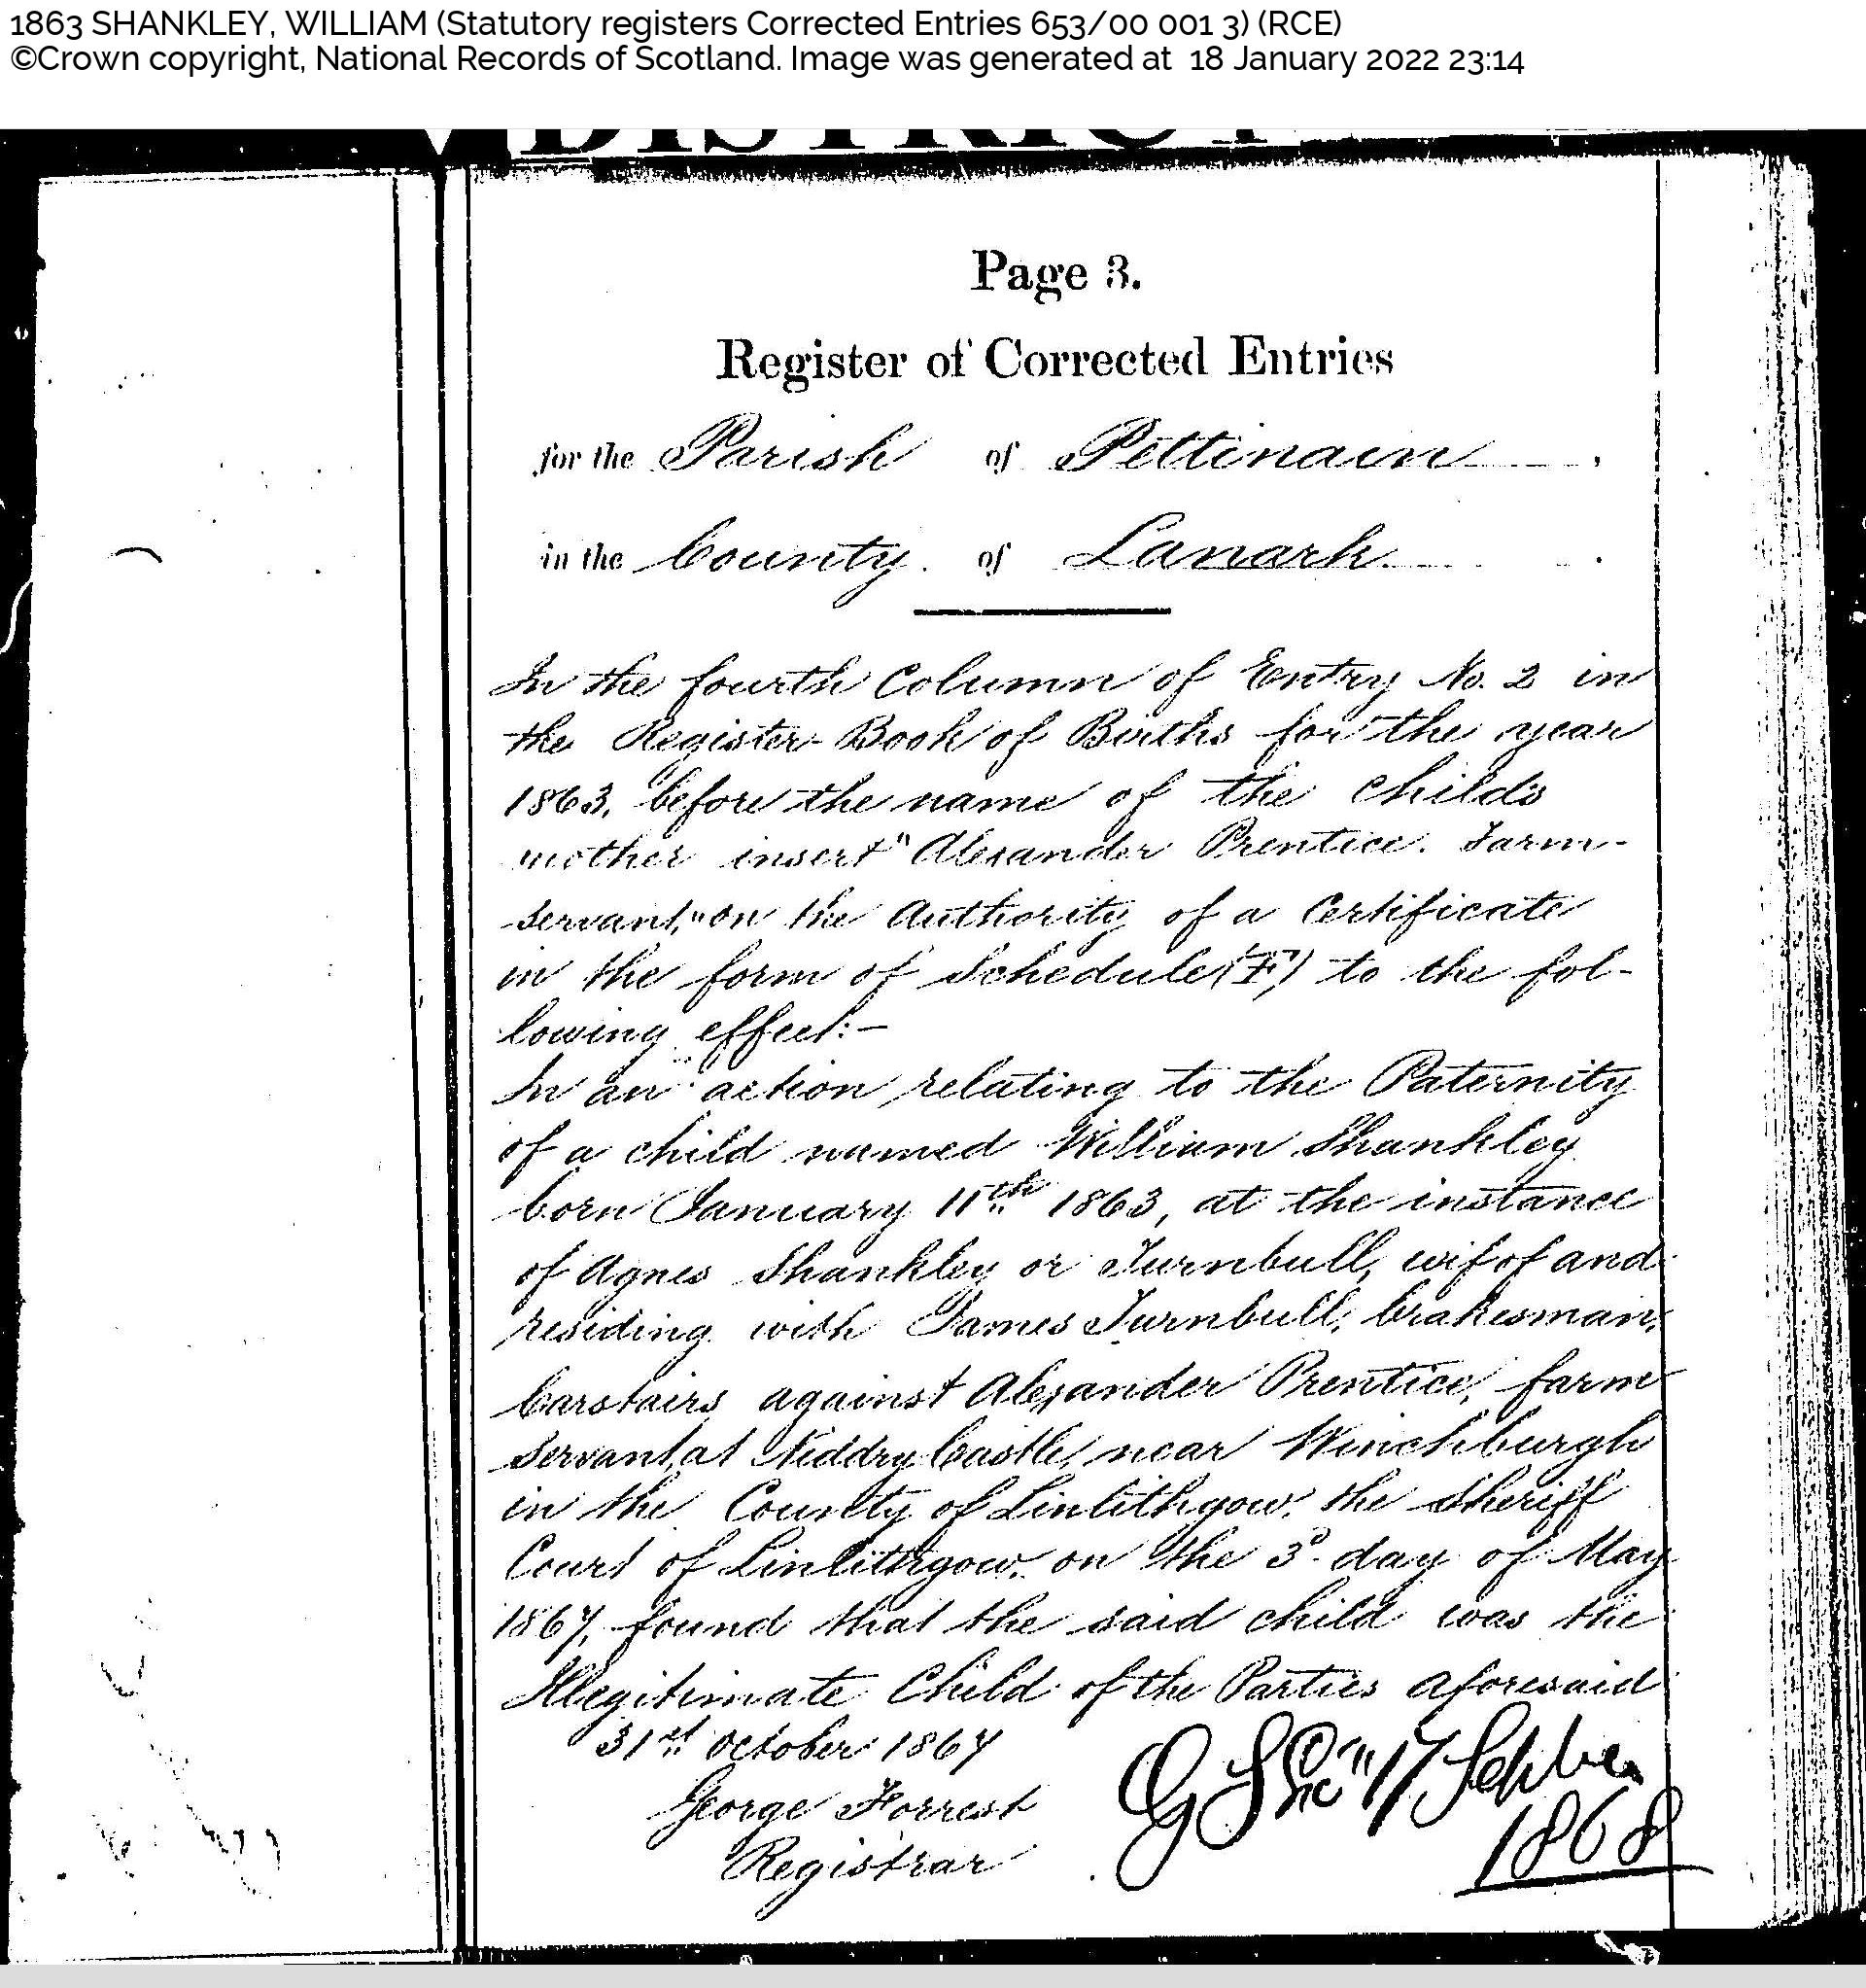 1863 SHANKLEY, WILLIAM (Statutory registers Corrected Entries 653/00 001 3) (RCE)
©Crown copyright, National Records of Scotland. Image was generated at 18 January 2022 23:14
DISTRICT
Page 3.
Register of Corrected Entries
for the Parish of Pettinain
in the County of Lanark.
In the fourth Column of Entry No. 2 in
the Register-Book of Births for the year
1863, before the name of the Child's
mother insert "Alexander Prentice. Farm-
servant," on the Authority of a Certificate
in the form of Schedule (F) to the fol-
lowing effect:-
In an action relating to the Paternity
of a child named William Shankley
born January 11th 1863, at the instance
of Agnes Shankley or Turnbull, wife of and
residing with James Turnbull, brakesman,
Carstairs against Alexander Prentice, farm
servant at Niddry Castle, near Winchburgh
in the County of Linlithgow, the Sheriff
Court of Linlithgow, on the 3d day of May
1867, found that the said child was the
Illegitimate Child of the Parties aforesaid
31st October 1867
George Forrest
Registrar
17
1868